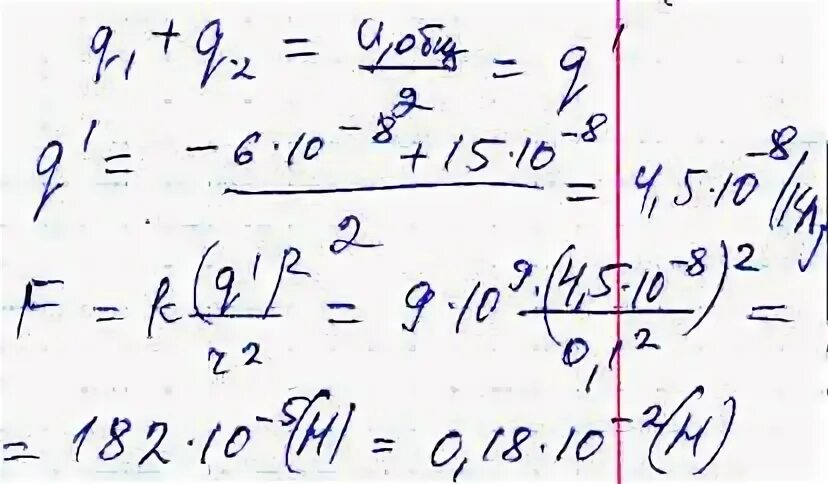 q₁ + q₂ = q,общ/2 = q'
q' = (-6·10⁻⁸ + 15·10⁻⁸)/2 = 4,5·10⁻⁸ (Кл)
F = k (q')²/r² = 9·10⁹·(4,5·10⁻⁸)²/0,1² =
= 182·10⁻⁵(Н) = 0,18·10⁻²(Н)